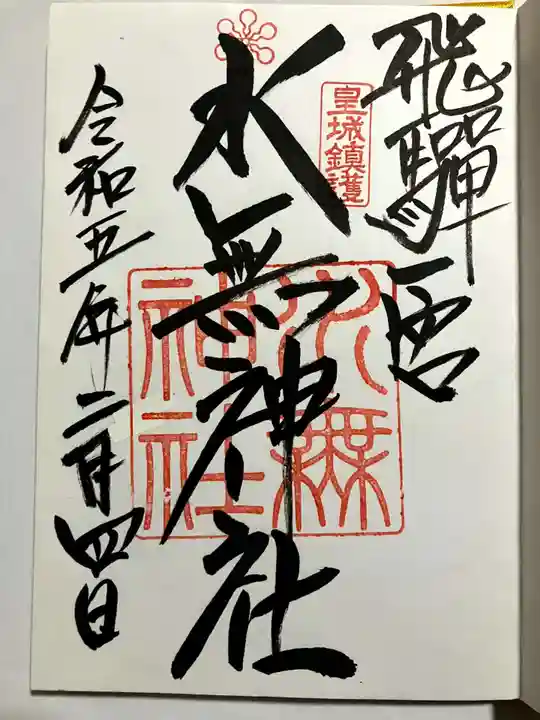 飛驒一宮
皇城鎮護
水無神社
水無神社
令和五年二月四日